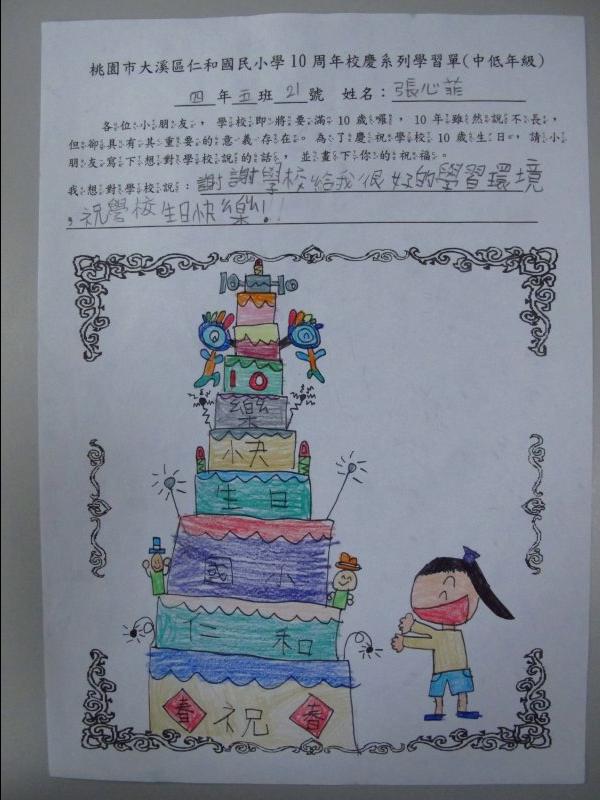 桃園市大溪區仁和國民小學10周年校慶系列學習單(中低年級)
四年五班21號 姓名:張心菲
各位小朋友,學校即將要滿10歲囉,10年雖然說不長,
但卻具有其重要的意義存在。為了慶祝學校10歲生日,請小
朋友寫下想對學校說的話,並畫下你的祝福。
我想對學校說:謝謝學校給我很好的學習環境
,祝學校生日快樂!!!
10 10
10
樂
快
生日
國小
仁和
春祝春